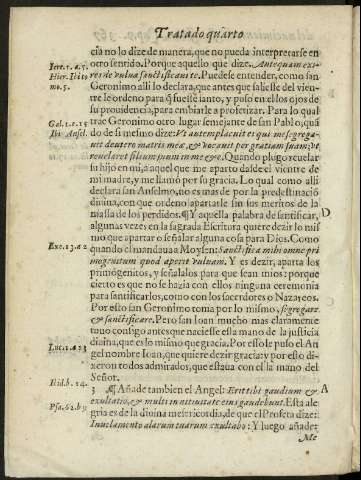 Tratado quarto
cia no lo dize de manera, que no pueda interpretarse en
otro sentido. Porque aquello que dize. Antequam exi-
res de vulua sanctificaui te. Puedese entender, como san
Geronimo alli lo declara, que antes que saliesse del vien-
tre le ordeno para q̃ fuesse santo, y puso en el los ojos de
su prouidencia, para embiarle a profetizar. Para lo qual
trae Geronimo otro lugar semejante de san Pablo, quã
do de si mesmo dize: Vt autem placuit ei qui me segrega-
uit de utero matris meæ, & vocauit per gratiam suam: vt
reuelaret filium suum in me &c. Quando plugo reuelar
su hijo en mi, a aquel que me aparto desde el vientre de
mi madre, y me llamó por su gracia. Lo qual como alli
declara san Anselmo, no es mas de por la predestinació
diuina, con que ordeno apartarle sin sus meritos de la
massa de los perdidos. ¶ Y aquella palabra de santificar,
algunas vezes en la sagrada Escritura quiere dezir lo mis
mo que apartar o señalar alguna cosa para Dios. Como
quando el mandaua a Moysen: Sanctifica mihi omne pri
mogenitum quod aperit vuluam. Y es dezir, aparta los
primogenitos, y señalalos para que sean mios: porque
cierto es que no se hazia con ellos ninguna ceremonia
para santificarlos, como con los sacerdotes o Nazareos.
Por esto san Geronimo toma por lo mismo, segregare
& sanctificare. Pero san Ioan mucho mas claramente
tuuo consigo antes que naciesse ella mano de la justicia
diuina, que es lo mismo que gracia. Por esso le puso el An
gel nombre Ioan, que quiere dezir gracia: y por esto di-
xeron todos admirados, que estaua con el la mano del
Señor.
3 ¶ Añade tambien el Angel: Erit tibi gaudium &
exultatio, & multi in natiuitate eius gaudebunt. Esta ale
gria es de la diuina misericordia, de que el Profeta dize:
In uelamento alarum tuarum exultabo: Y luego añade:
Me
Iere. 1. a. 5.
Hier. Ibi to
mo. 5.
Gal. 1. c. 15
Ibi Ansel.
Exo. 13. a 2
Luc. 1. a 13
Psa. 62. b 9
D
A